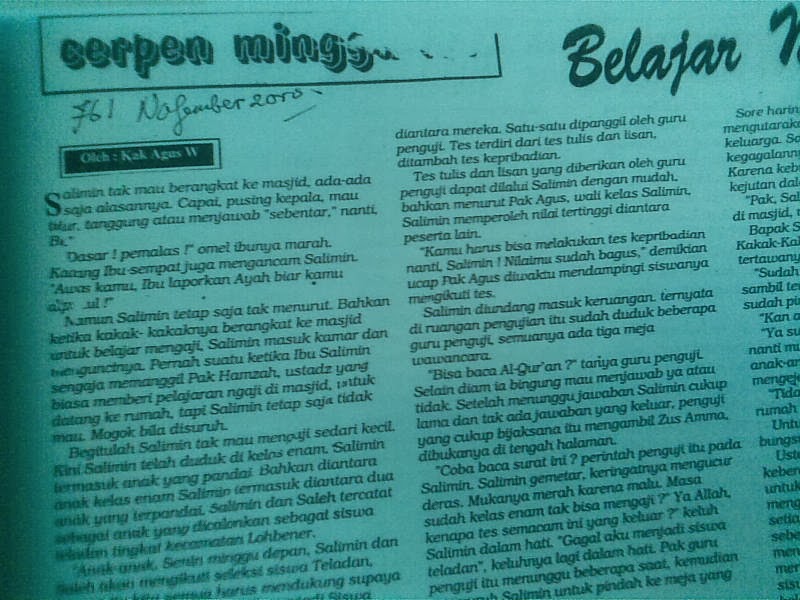 cerpen minggu
Belajar
761 Nofember 2010
Oleh : Kak Agus W
Salimin tak mau berangkat ke masjid, ada-ada
saja alasannya. Capai, pusing kepala, mau
tidur, tanggung atau menjawab "sebentar," nanti,
"Dasar ! pemalas !" omel ibunya marah.
Kadang Ibu sempat juga mengancam Salimin.
"Awas kamu, Ibu laporkan Ayah biar kamu
Namun Salimin tetap saja tak menurut. Bahkan
ketika kakak- kakaknya berangkat ke masjid
untuk belajar mengaji, Salimin masuk kamar dan
menguncinya. Pernah suatu ketika Ibu Salimin
sengaja memanggil Pak Hamzah, ustadz yang
biasa memberi pelajaran ngaji di masjid, untuk
datang ke rumah, tapi Salimin tetap saja tidak
mau. Mogok bila disuruh.
Begitulah Salimin tak mau mengaji sedari kecil.
Kini Salimin telah duduk di kelas enam. Salimin
termasuk anak yang pandai. Bahkan diantara
anak kelas enam Salimin termasuk diantara dua
anak yang terpandai. Salimin dan Saleh tercatat
sebagai anak yang dicalonkan sebagai siswa
teladan tingkat kecamatan Lohbener.
"Anak-anak, Senin minggu depan, Salimin dan
Saleh akan mengikuti seleksi siswa Teladan,
kita semua harus mendukung supaya
Siswa
diantara mereka. Satu-satu dipanggil oleh guru
penguji. Tes terdiri dari tes tulis dan lisan,
ditambah tes kepribadian.
Tes tulis dan lisan yang diberikan oleh guru
penguji dapat dilalui Salimin dengan mudah,
bahkan menurut Pak Agus, wali kelas Salimin,
Salimin memperoleh nilai tertinggi diantara
peserta lain.
"Kamu harus bisa melakukan tes kepribadian
nanti, Salimin ! Nilaimu sudah bagus," demikian
ucap Pak Agus diwaktu mendampingi siswanya
mengikuti tes.
Salimin diundang masuk keruangan. ternyata
di ruangan pengujian itu sudah duduk beberapa
guru penguji, semuanya ada tiga meja
wawancara.
"Bisa baca Al-Qur'an ?" tanya guru penguji.
Selain diam ia bingung mau menjawab ya atau
tidak. Setelah menunggu jawaban Salimin cukup
lama dan tak ada jawaban yang keluar, penguji
yang cukup bijaksana itu mengambil Zus Amma,
dibukanya di tengah halaman.
"Coba baca surat ini ? perintah penguji itu pada
Salimin. Salimin gemetar, keringatnya mengucur
deras. Mukanya merah karena malu. Masa
sudah kelas enam tak bisa mengaji ?" Ya Allah,
kenapa tes semacam ini yang keluar ?" keluh
Salimin dalam hati. "Gagal aku menjadi siswa
teladan", keluhnya lagi dalam hati. Pak guru
penguji itu menunggu beberapa saat, kemudian
Salimin untuk pindah ke meja yang
Sore harin
mengutaraka
keluarga. Sa
kegagalann
Karena keb
kejutan dala
"Pak, Sal
di masjid,
Bapak S
Kakak-Kak
tertawany
"Sudah
sambil te
sudah pi
"Kan a
"Ya su
nanti mu
anak-an
mengeje
"Tida
rumah
Untu
bungsu
Uste
keben
untuk
meng
setia
sebe
men
sis